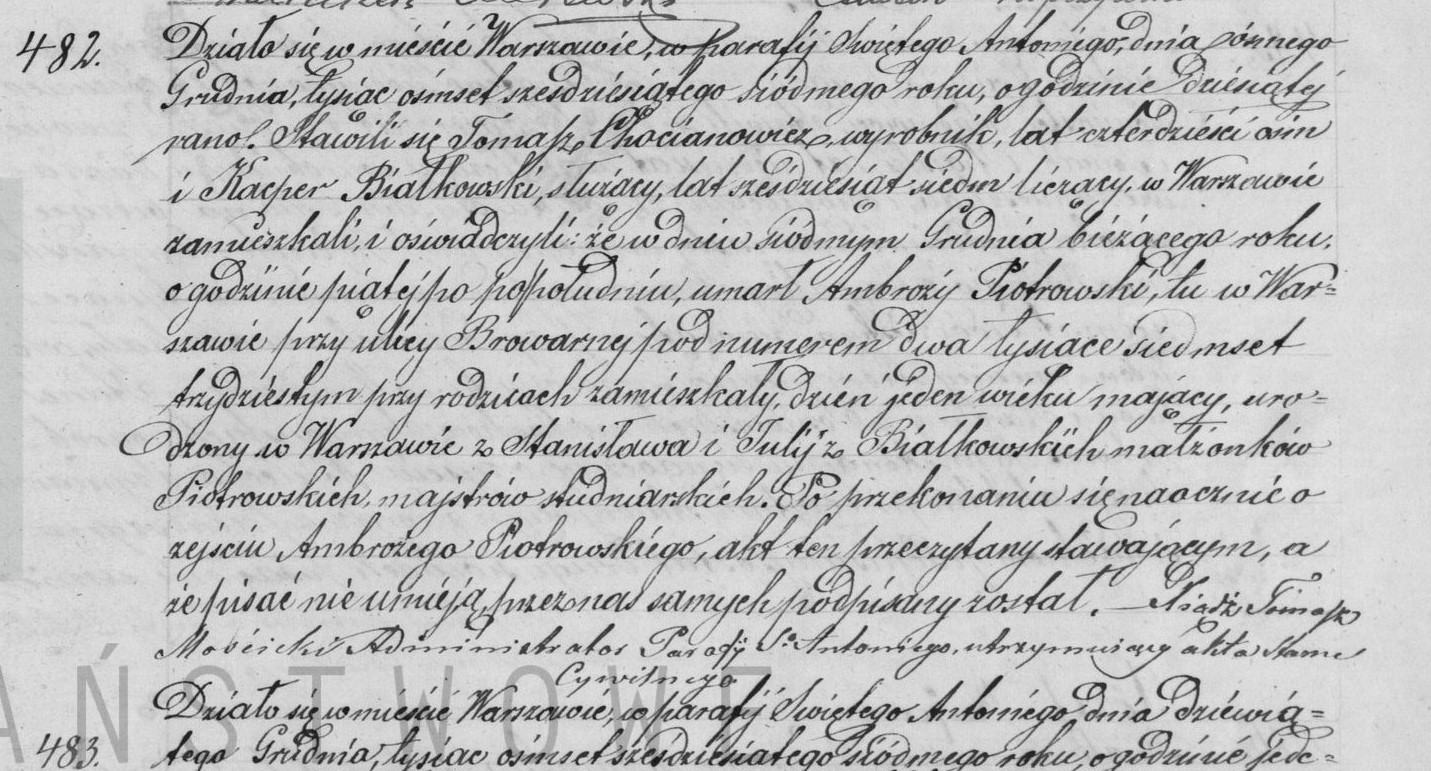 482. Działo się w mieście Warszawie, w parafij Swiętego Antoniego, dnia ósmego
Grudnia, tysiąc ośmset sześdziesiątego siódmego roku, o godzinie dziesiątéj
rano. Stawili się Tomasz Chocianowicz, wyrobnik, lat czterdzieści ośm
i Kacper Białkowski, służący, lat sześdziesiąt siedm liczący, w Warszawie
zamieszkali, i oświadczyli: że w dniu siódmym Grudnia bieżącego roku,
o godzinie piątéj po południu, umarł Ambroży Piotrowski, tu w War=
szawie przy ulicy Browarnéj pod numerem dwa tysiące siedmset
trzydziestym przy rodzicach zamieszkały, dzień jeden wieku mający, uro=
dzony w Warszawie z Stanisława i Julij z Białkowskich małżonków
Piotrowskich, majstrów studniarskich. Po przekonaniu się naocznie o
zejściu Ambrożego Piotrowskiego, akt ten przeczytany stawającym, a
że pisać nie umieją, przez nas samych podpisany został. Ksiądz Tomasz
Mościcki Administrator Parafij Sº Antoniego, utrzymujący akta Stanu
Cywilnego
AŃSTWOWE
483. Działo się w mieście Warszawie, w parafij Swiętego Antoniego dnia dziéwią=
tego Grudnia, tysiąc ośmset sześdziesiątego siódmego roku, o godzinie jede=